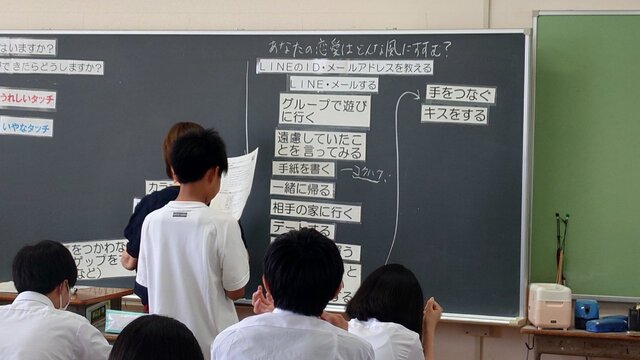 はいますか?
できたらどうしますか?
うれしいタッチ
いやなタッチ
あなたの恋愛はどんな風にすすむ?
LINEのID・メールアドレスを教える
LINE・メールする
グループで遊び
に行く
遠慮していたこ
とを言ってみる
手紙を書く
一緒に帰る
相手の家に行く
デートする
手をつなぐ
キスをする
カラ
をつかわな
ゲップを
など)